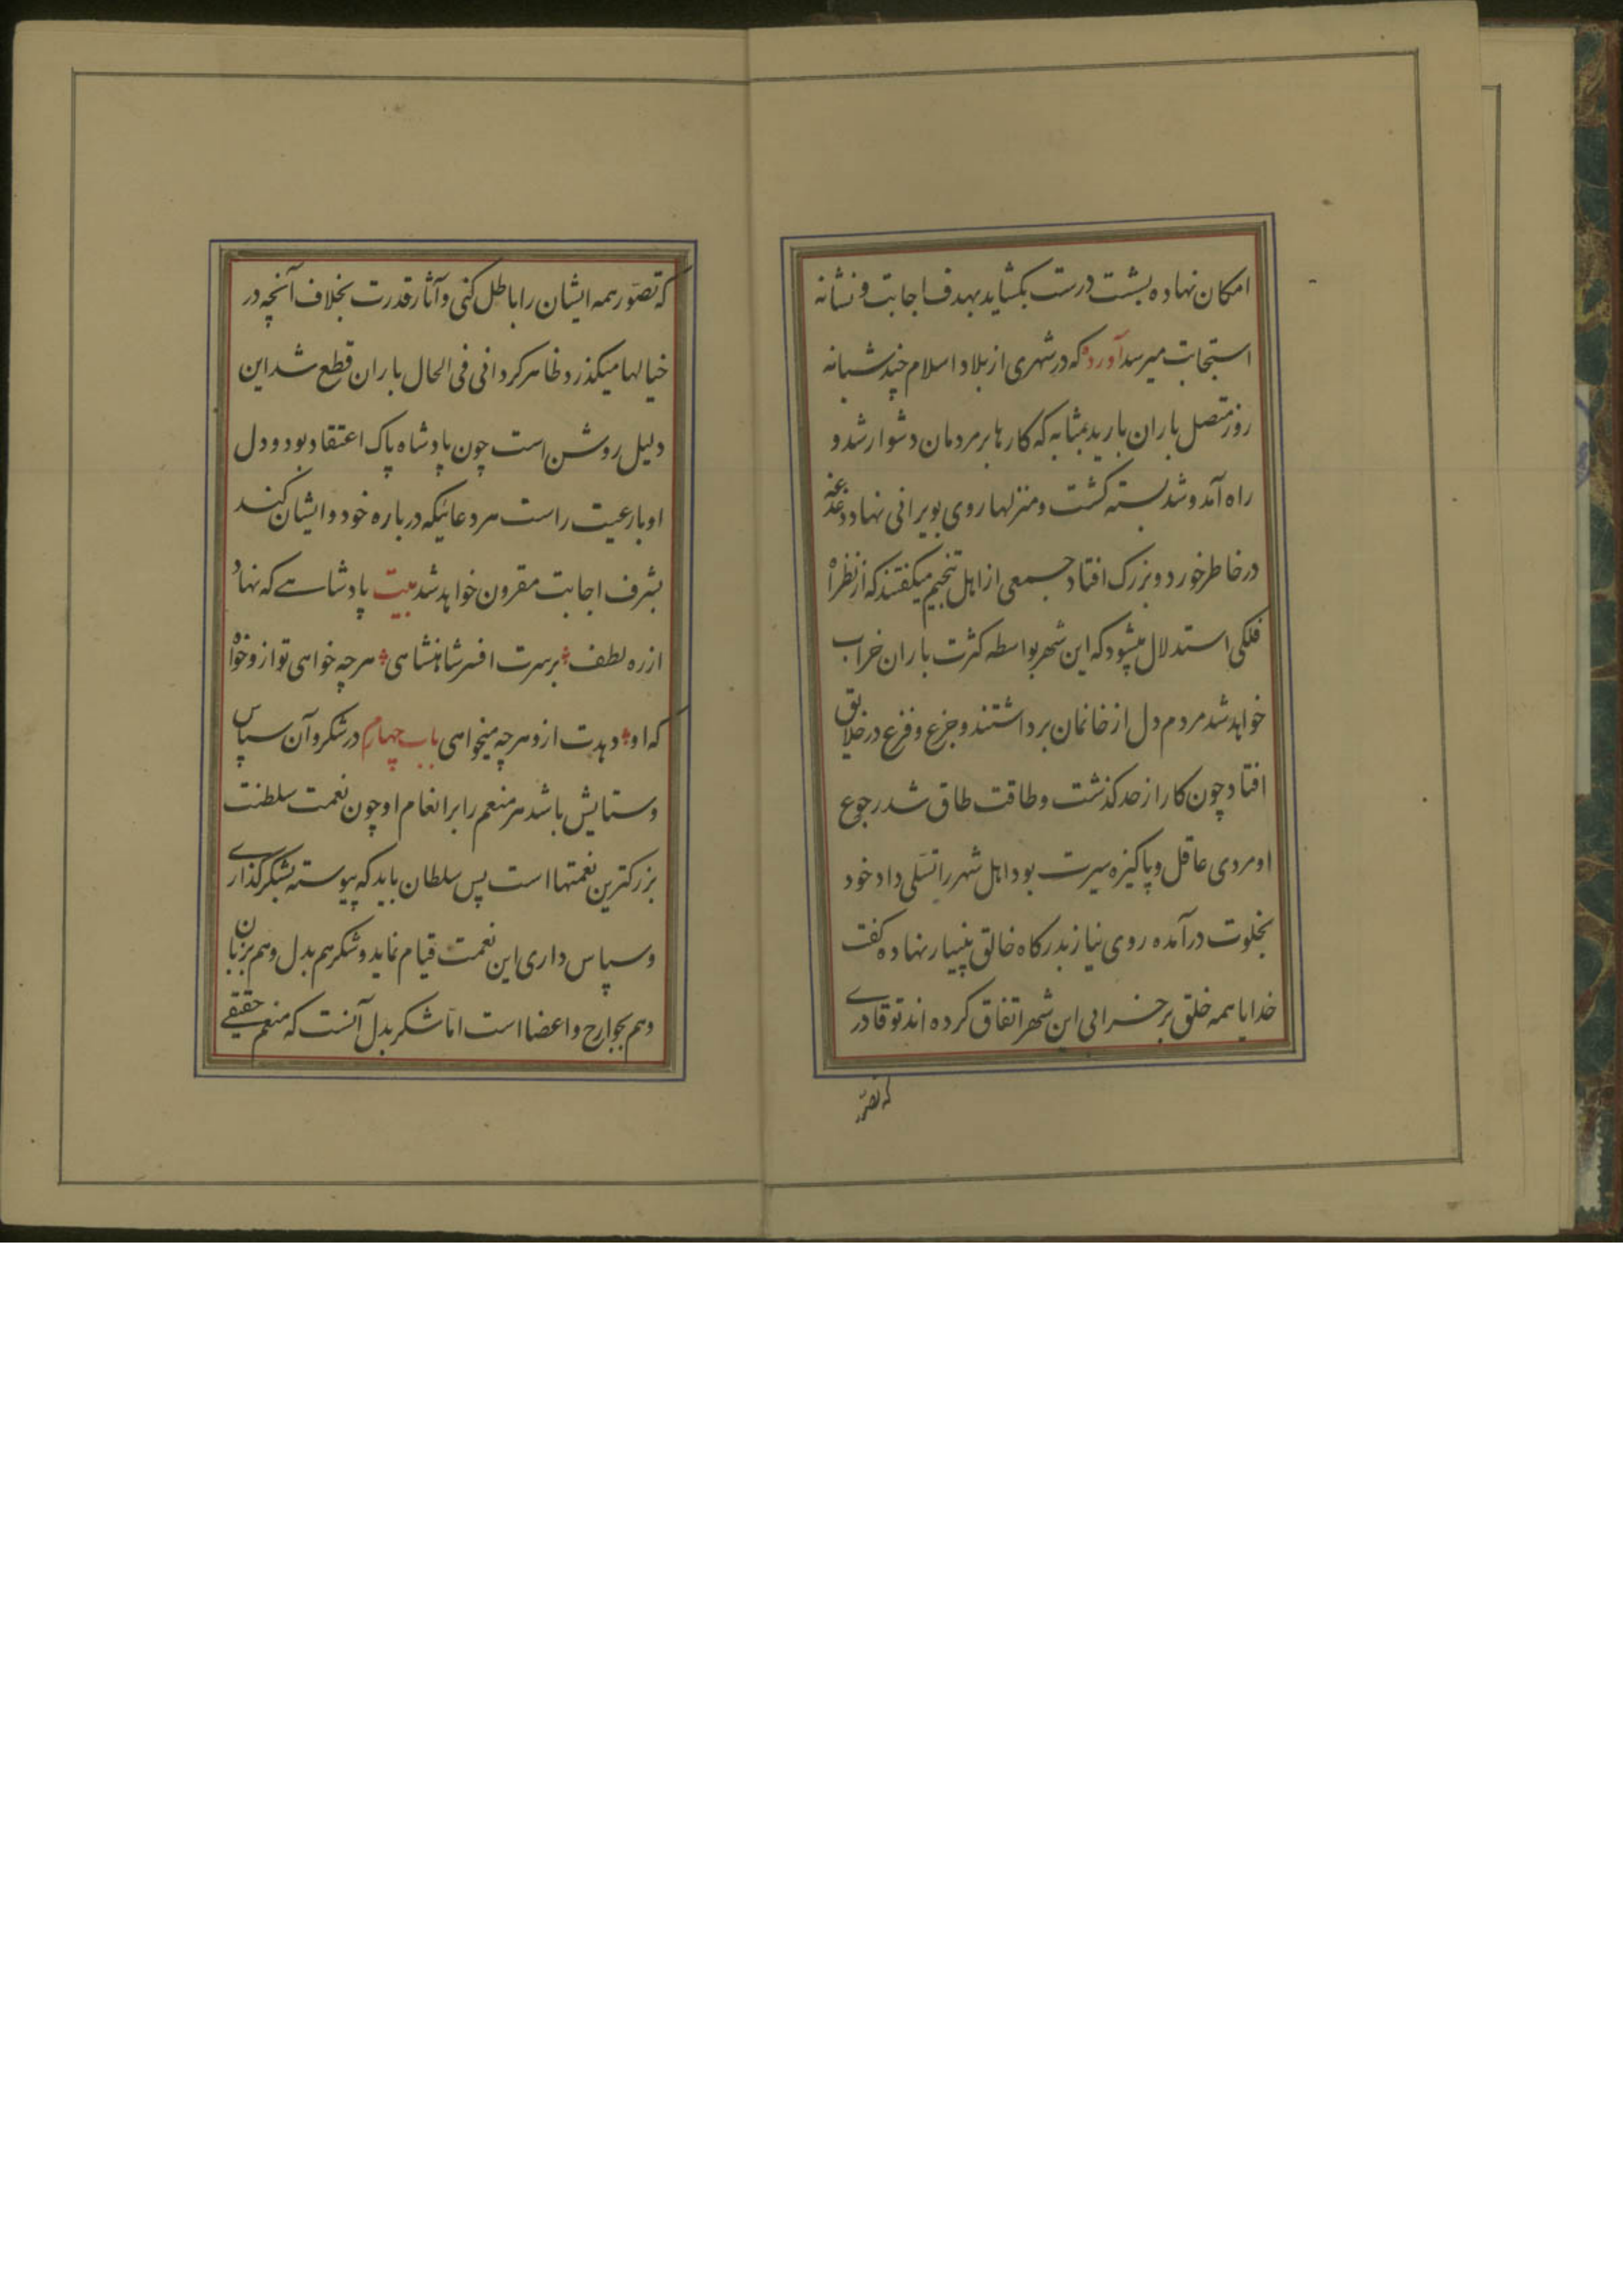 امکان نهاده بشست درست بکشاید بهدف اجابت و نشانه
استجابت میرسد آورده که در شهری از بلاد اسلام چند شبانه
روز متصل باران بارید بمثابه که کارها بر مردمان دشوار شد و
راه آمد و شد بسته کشت و منزلها روی بویرانی نهاد دغدغه
در خاطر خورد و بزرک افتاد جمعی از اهل تنجیم میکفتند که از نظرا
فلکی استدلال میشود که این شهر بواسطه کثرت باران خراب
خواهد شد مردم دل از خانمان برداشتند و جزع و فزع در خلایق
افتاد چون کار از حد کذشت و طاقت طاق شد رجوع
او مردی عاقل و پاکیزه سیرت بود اهل شهر را تسلی داد خود
بخلوت درآمده روی نیاز بدرکاه خالق بنهاده کفت
خدایا همه خلق بر خرابی این شهر اتفاق کرده اند تو قادری
که تصور
که تصور همه ایشان را باطل کنی و آثار قدرت بخلاف آنچه در
خیالها میکذرد ظاهر کردانی فی الحال باران قطع شد این
دلیل روشن است چون پادشاه پاک اعتقاد بود و دل
او با رعیت راست هر دعائیکه درباره خود و ایشان کند
بشرف اجابت مقرون خواهد شد بیت پادشاهے که نهاد
از ره لطف برسرت افسر شاهنشاهی هرچه خواهی تو ازو خواه
که او دهدت ازو هرچه میخواهی باب چهارم در شکر و آن سپاس
و ستایش باشد هر منعم را بر انعام او چون نعمت سلطنت
بزرکترین نعمتها است پس سلطان باید که پیوسته بشکرکذاری
و سپاس داری این نعمت قیام نماید و شکر هم بدل و هم بزبان
و هم بجوارح و اعضا است اما شکر بدل آنست که منعم حقیقے